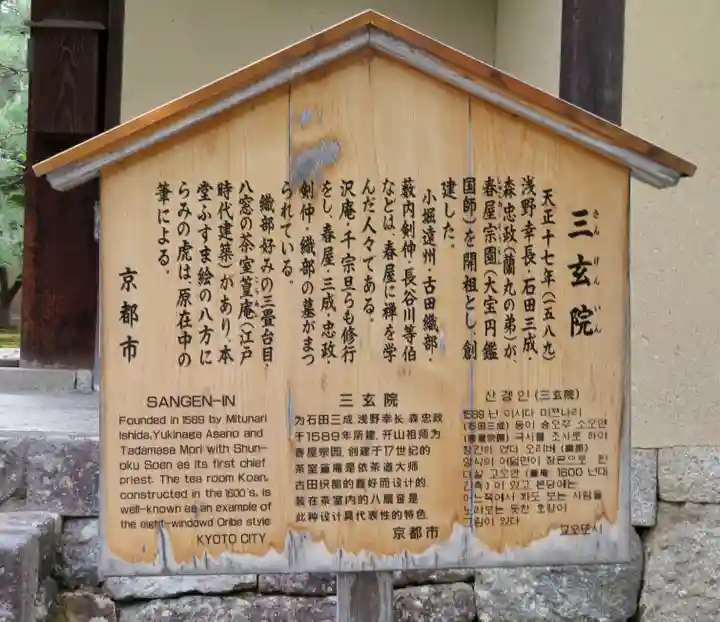 三玄院
さんげんいん
天正十七年（一五八九）
浅野幸長・石田三成・
森忠政（蘭丸の弟）が、
春屋宗園（大宝円鑑
しゅんおくそうえん
国師）を開祖とし、創
建した。
小堀遠州・古田織部・
薮内剣仲・長谷川等伯
などは、春屋に禅を学
んだ人々である。
沢庵・千宗旦らも修行
をし、春屋・三成・忠政・
剣仲・織部の墓がまつ
られている。
織部好みの三畳台目・
八窓の茶室篁庵（江戸
こうあん
時代建築）があり、本
堂ふすま絵の八方に
らみの虎は、原在中の
筆による。
京都市
SANGEN-IN
Founded in 1589 by Mitunari
Ishida, Yukinaga Asano and
Tadamase Mori with Shun-
oku Soen as its first chief
priest. The tea room Koan,
constructed in the 1600's, is
well-known as an example of
the eight-windowd Oribe style
KYOTO CITY
三玄院
为石田三成 浅野幸长 森忠政
于1589年所建, 开山祖师为
春屋宗园, 创建于17世纪的
茶室篁庵是依茶道大师
古田织部的喜好而设计的.
装在茶室内的八扇窗是
此种设计具代表性的特色.
京都市
산갱인 (三玄院)
1589 년 이시다 미쯔나리
(石田三成) 등이 승오꾸 소오앤
국사를 조사로 하여
창건이 였다 오리베
양식의 여덟면이 창문으로 된
다실 고오앤 1600 년대
건축) 이 있고 본당에는
어느쪽에서 봐도 보는 사람을
노려보는 듯한 호랑이
그림이 있다
교오또시